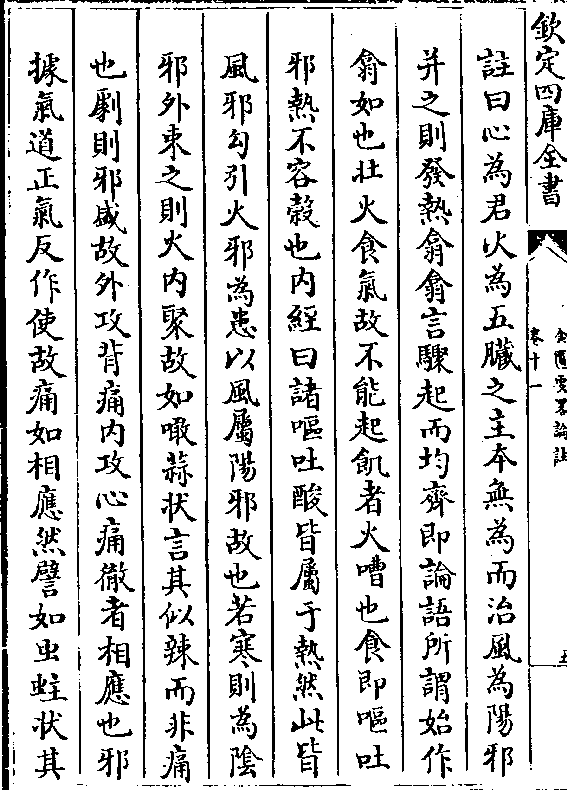 欽定四庫全書
金匱要略論註
卷十一
五
註曰心為君火為五臟之主本無為而治風為陽邪
并之則發熱翕翕言驟起而均齊即論語所謂始作
翕如也壯火食氣故不能起飢者火嘈也食即嘔吐
邪熱不容穀也内經曰諸嘔吐酸皆屬于熱然此皆
風邪勾引火邪為患以風屬陽邪故也若寒則為陰
邪外束之則火内聚故如噉蒜状言其似辣而非痛
也劇則邪盛故外攻背痛内攻心痛徹者相應也邪
據氣道正氣反作使故痛如相應然譬如虫蛀状其